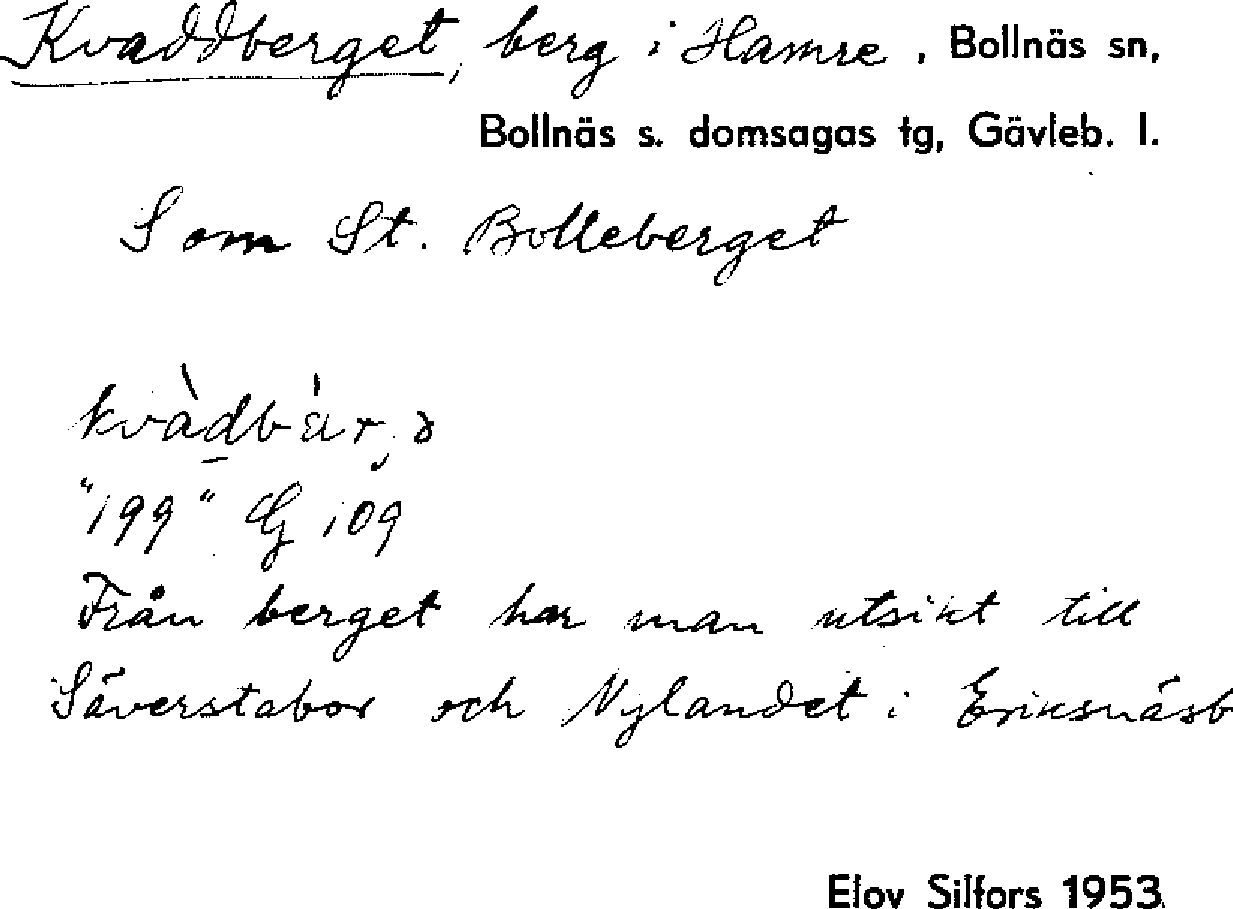 Kvaddberget, berg i Hamre, Bollnäs sn,
Bollnäs s. domsagas tg, Gävleb. l.
Som St. Bolleberget
"199" G 109
Från berget har man utsikt till
Säverstabor och Nylandet i Eriksnäsb
Elov Silfors 1953.